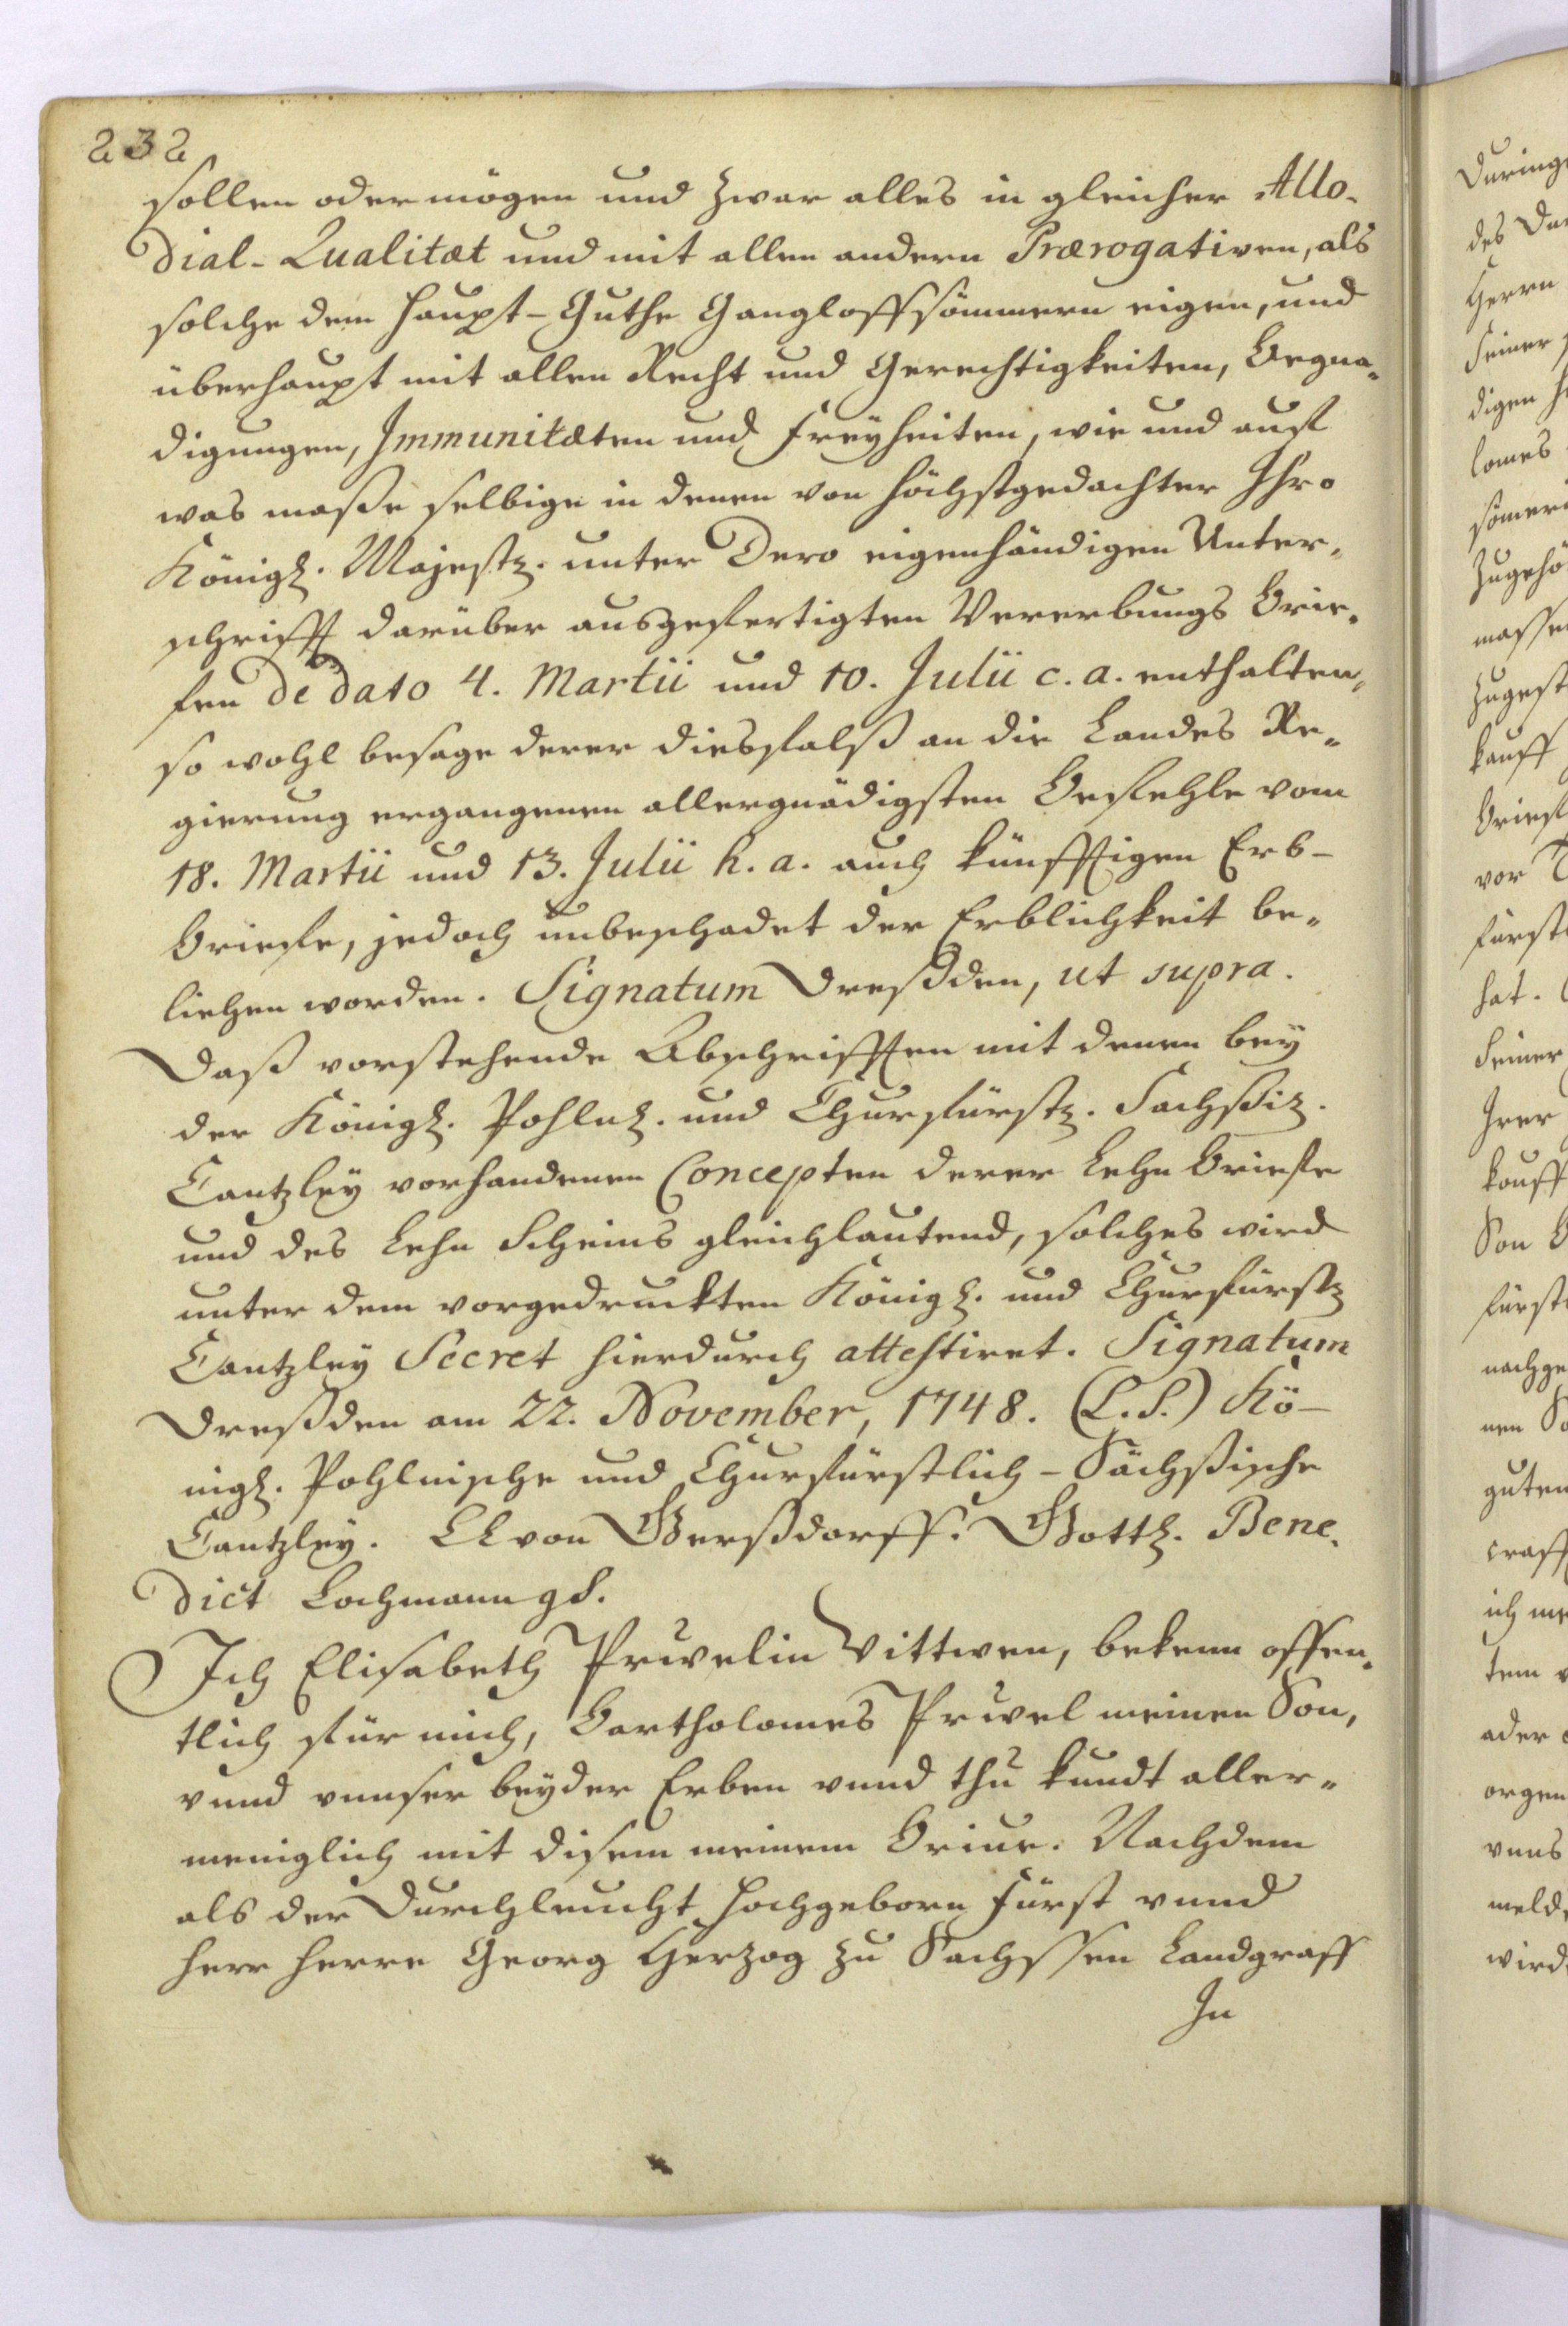 232
sollen oder mögen und zwar alles in gleicher Allo-
dial-Qualitæt und mit allen andern Prærogativen, als
solche dem Haupt-Guthe Gangloffsömmern eigen, und
überhaupt mit allen Recht und Gerechtigkeiten, Begna-
digungen, Immunitæten und Freyheiten, wie und auf
was maße selbige in denen von höchstgedachter Ihro
Königl. Majestz. unter Dero eigenhändigen Unter-
schrifft darüber ausgefertigten Vererbungs Brie-
fen de dato 4. Martii und 10. Julii c. a. enthalten,
so wohl besage derer diesfalß an die Landes Re-
gierung ergangenen allergnädigsten Befehle vom
18. Martii und 13. Julii h. a. auch künfftigen Erb-
Briefe, jedoch unbeschadet der Erblichkeit be-
liehen worden. Signatum Dreßden, ut supra.
Daß vorstehende Abschrifften mit denen bey
der Königl. Pohln. und Churfürstl. Sächßis.
Cantzley vorhandenen Concepten derer Lehn Briefe
und des Lehn Scheins gleichlautend, solches wird
unter dem vorgedruckten Königl. und Churfürstl
Cantzley Secret hierdurch attestiret. Signatum
Dreßden am 22. November, 1748. (L.S.) Kö-
nigl. Pohlnische und Churfürstlich-Sächßische
Cantzley. von Gerßdorff. Gottl. Bene-
dict Lochmann gS.
Ich Elisabeth Pruvelin Vittwen, bekenn offen-
tlich für mich, Bartholomes Pruvel meinen Son,
vnnd vnnser beyder Erben vnnd thu kundt aller-
meniglich mit disem meinem Briue. Nachdem
als der Durchleucht Hochgeborn Fürst vnnd
Herr Herre Georg Herzog zu Sachssen Landgraff
In
During
des
Herrn
Seiner
digen
lomes
sömeri
Zugehö
masse
zugest
kauff
Brieff
vor
fürst
hat.
Seiner
Irer
kouff
Son
fürst
nachge
nen
guten
craff
ich
tem
ader
orgen
vnns
meld
wird